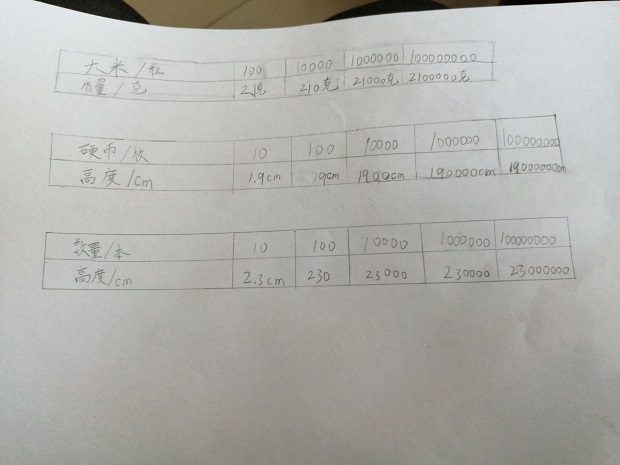 大米/粒 100 10000 1000000 100000000
质量/克 2.1克 210克 21000克 2100000克
硬币/枚 10 100 10000 1000000 100000000
高度/cm 1.9cm 19cm 1900cm 190000cm 19000000cm
数量/本 10 100 10000 1000000 100000000
高度/cm 2.3cm 230 23000 230000 23000000